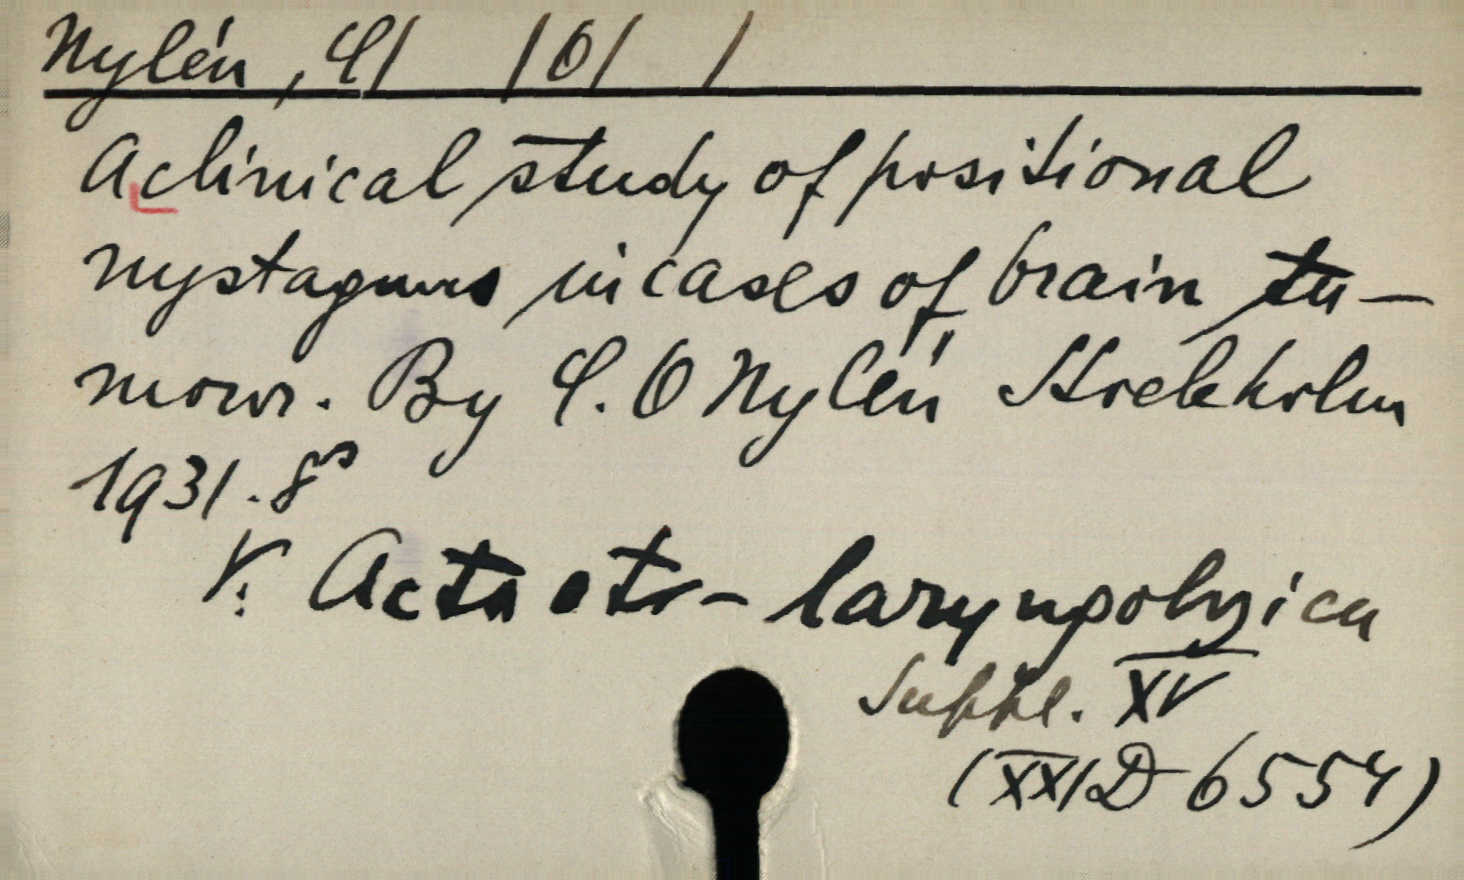 Nylén, C/ /O/ /
A clinical study of positional
nystagmus in cases of brain tu-
mour. By C. O Nylén Stockholm
1931. 8º
V: Acta oto-laryngologica
Suppl. XV
(XXI D 6554)